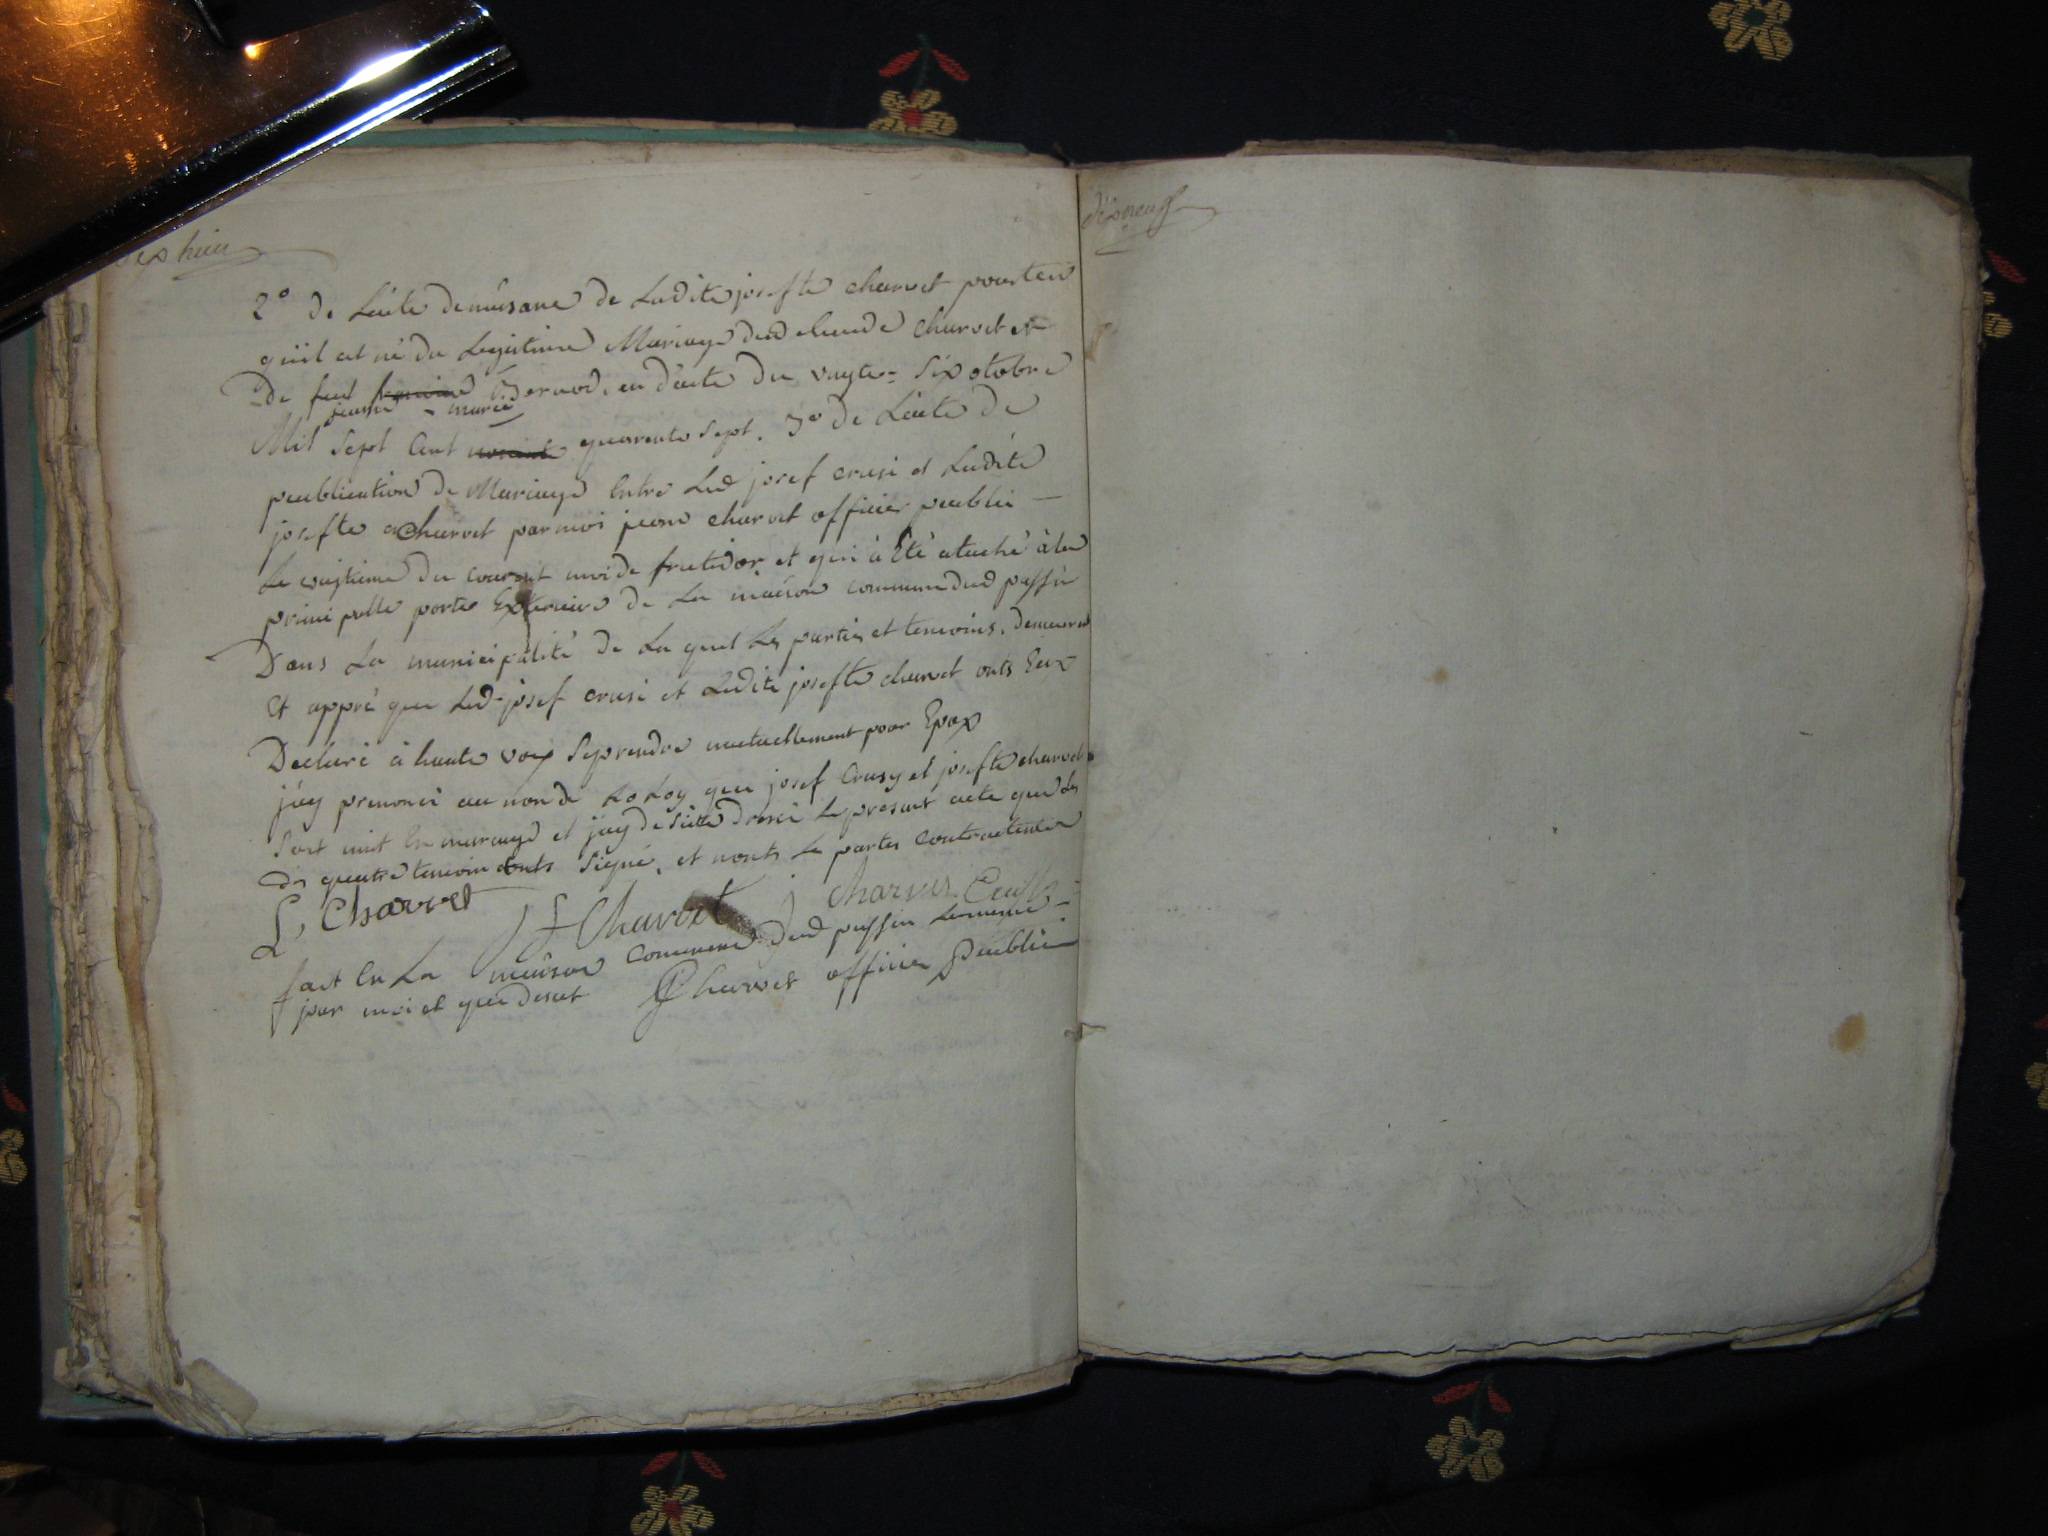 dix huit
2° de L'acte de naisance de Ladite josefte charvet portent
quil est né du Legitime Mariage dud claude charvet et
De feu jeanne - marie Bernod, en d'acte du vingte= six otobre
Mil sept Cent quarente sept. 3° de L'acte de
publication de Mariage Entre Led josef crusi et Ladite
josefte Charvet par moi jean charvet officier publi —
Le vingtieme du courant moi de frutidor, et qui à Eté ataché à la
principalle porte Exterieure de La maison commune dud passin
Dans La municipalité de La quel Les partis et temoins. demeurent
Et appré que Led josef crusi et Ladite josefte charvet onts Eux
Declaré à haute voix seprendre mutuellement pour Epox
j'ay prenoncé au nom de La Loy que josef Crusy et josefte charvet
sont unit En mariage et j'ay de suitte dressé Le present acte que Les
des quatre temoin onts signé, et nonts Le partes contractente
L, Charvet J f Charvet J Charvet
fait En La maison commune dud passin Lesmeme
jour moi et que desut J Charvet officier publi
dix neuf